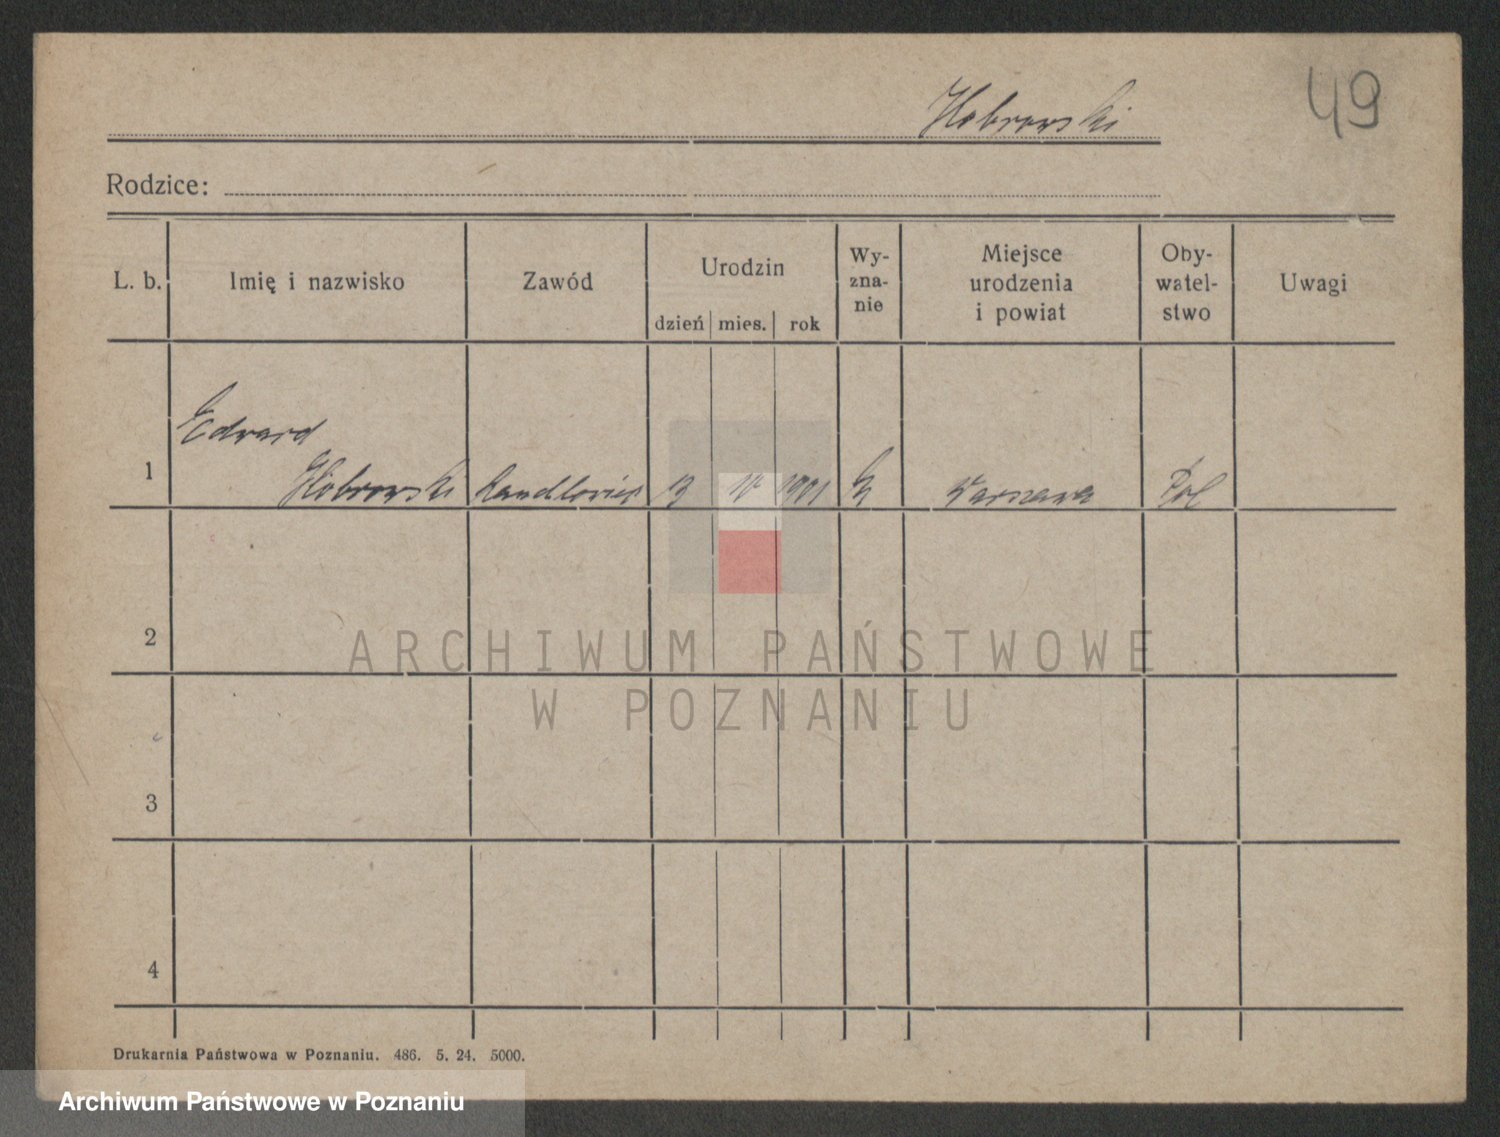 Hobrowski
49
Rodzice:
L. b.
Imię i nazwisko
Zawód
Urodzin
dzień
mies.
rok
Wy-
zna-
nie
Miejsce
urodzenia
i powiat
Oby-
watel-
stwo
Uwagi
1
Edward
Hobrowski
handlowiec
13
IV
1901
Warszawa
Pol
2
3
4
ARCHIWUM PAŃSTWOWE
W POZNANIU
Drukarnia Państwowa w Poznaniu. 486. 5. 24. 5000.
Archiwum Państwowe w Poznaniu